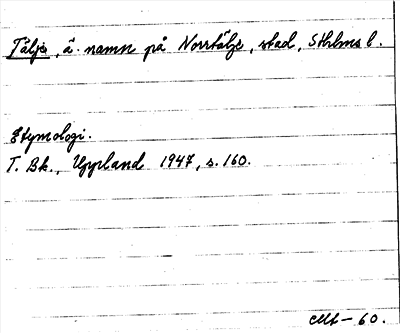 Tälje, ä. namn på Norrtälje, stad, Sthlms l.
Etymologi.
T. Bk., Uppland 1947, s. 160.
-60.